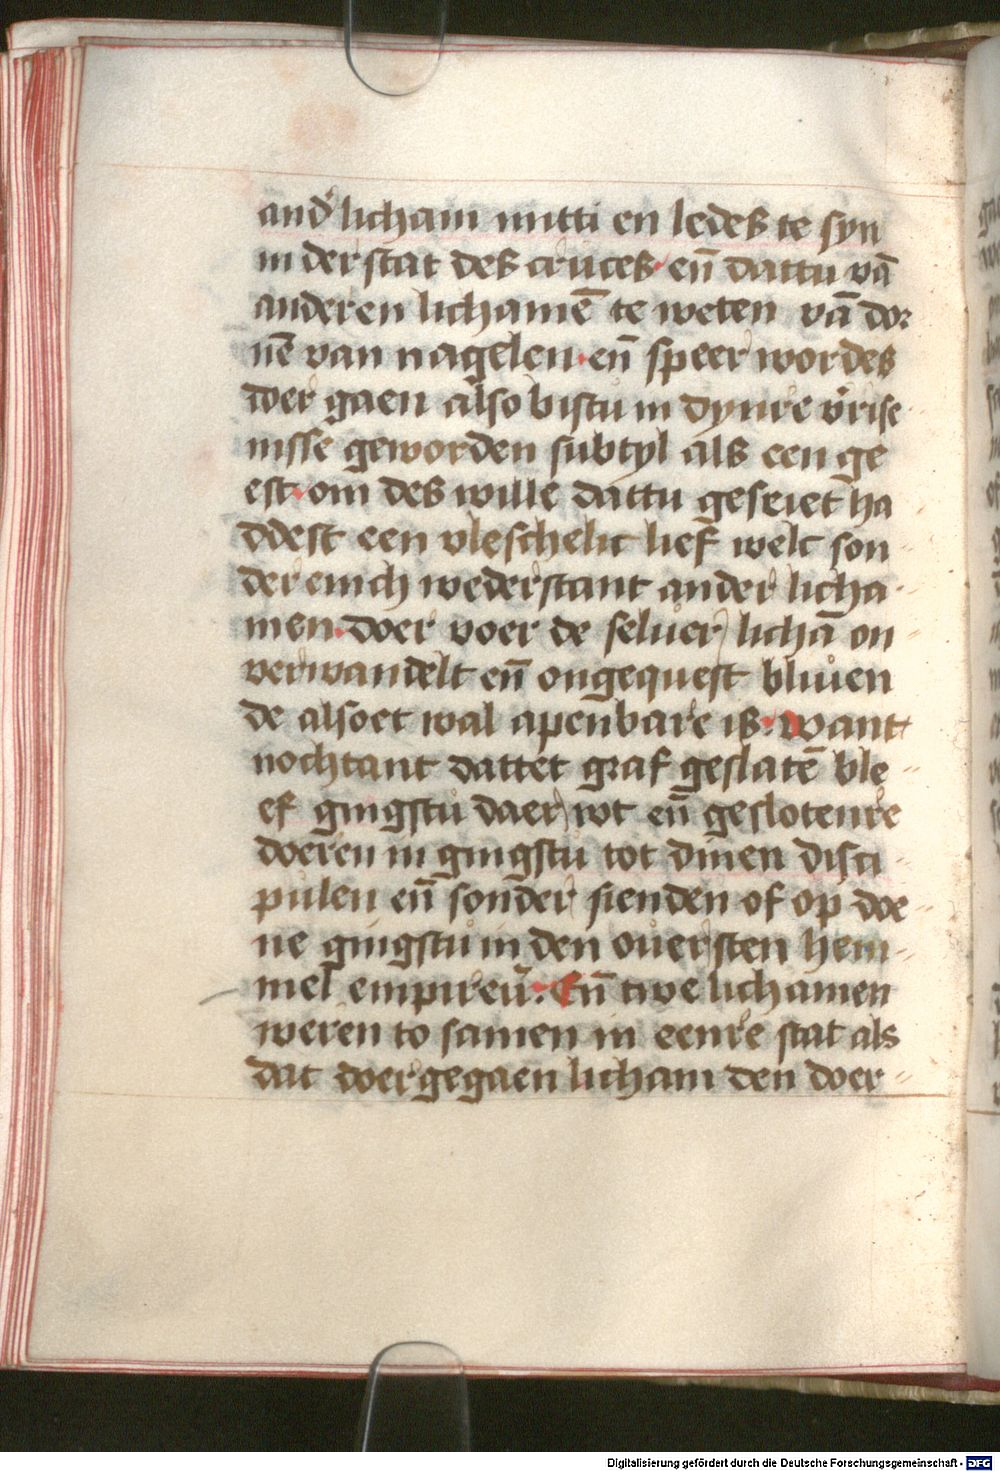 and̛ licham mitti en ledes te syn
in der stat des cruces· en̄ dattu vā
anderen lichamē te weten vā dor
nē van nagelen· en̄ speer wordes
doer gaen also bistu in dynre v̛rise
nisse geworden subtyl als een ge
est· om des wille dattu geseiet ha-
ddest een vleschelic lief welc son-
der enich wederstant ander licha-
men· doer voer de seluer lichā on-
verwandelt en̄ ongequest bliuen
de alsoet wal apenbare is· want
nochtant dattet graf geslatē ble-
ef gingstu daer wt en̄ geslotenre
doeren in gingstu tot dinen disci-
pulen en̄ sonder sienden of op doe-
ne gingstu in den ouersten hem-
mel empireū· En̄ twe lichamen
weren to samen in eenre stat als
dat doergegaen licham den doer-
Digitalisierung gefördert durch die Deutsche Forschungsgemeinschaft - DFG